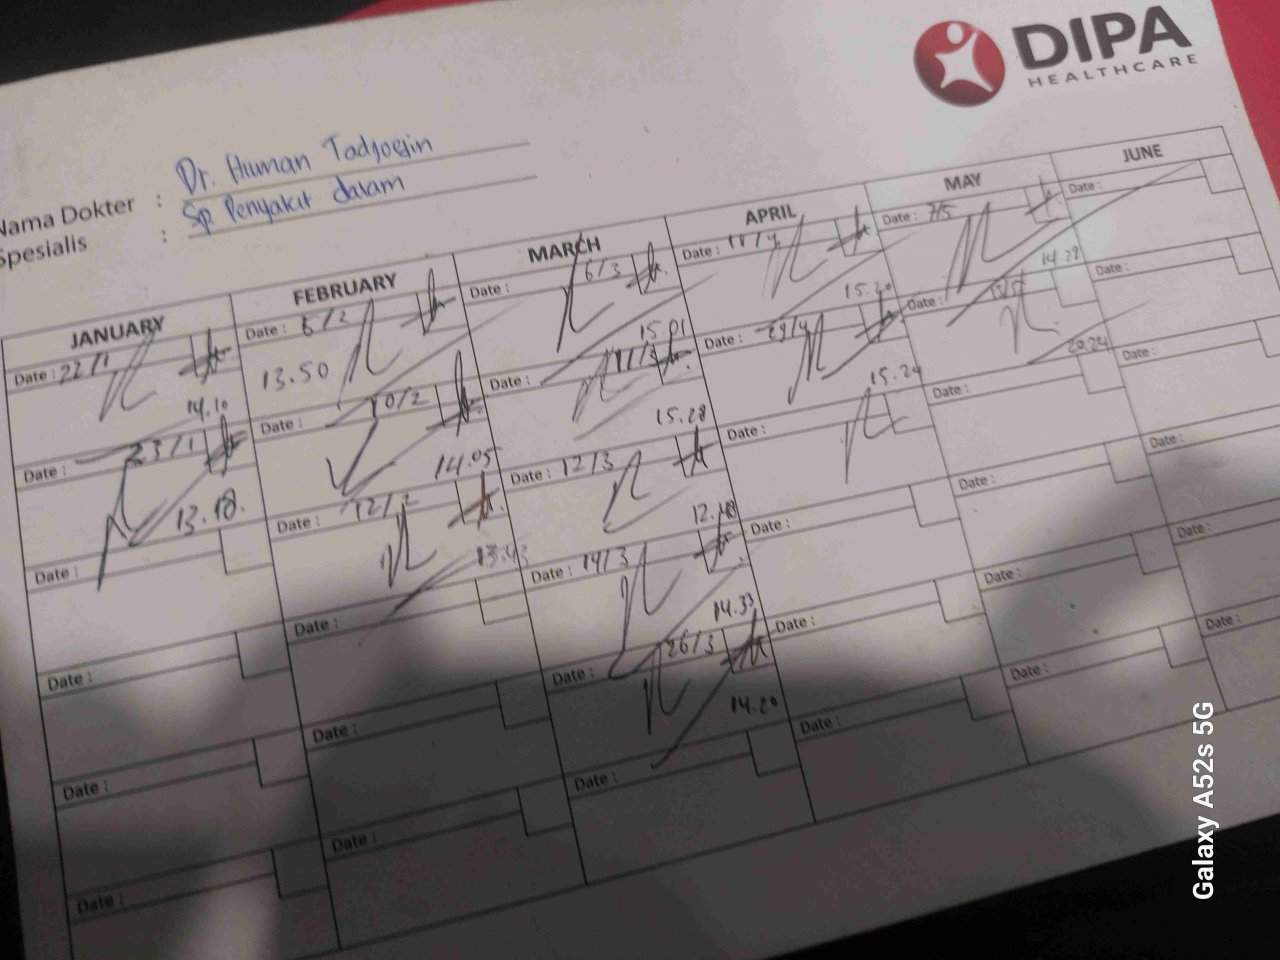 DIPA
HEALTHCARE
Nama Dokter : Dr. Human Tadjoedin
Spesialis : Sp. Penyakit dalam
JANUARY
Date : 22/1
14.10
Date : 23/1
13.18.
Date :
Date :
Date :
Date :
FEBRUARY
Date : 6/2
13.50
Date : 10/2
14.05
Date : 12/2
13.43
Date :
Date :
Date :
MARCH
Date : 6/3
15.01
Date : 11/3
15.28
Date : 12/3
12.48
Date : 14/3
14.33
Date : 26/3
14.20
Date :
APRIL
Date : 11/4
15.20
Date : 29/4
15.24
Date :
Date :
Date :
Date :
MAY
Date : 7/5
14.29
Date :
20.24
Date :
Date :
Date :
Date :
JUNE
Date :
Date :
Date :
Date :
Date :
Date :
Galaxy A52s 5G